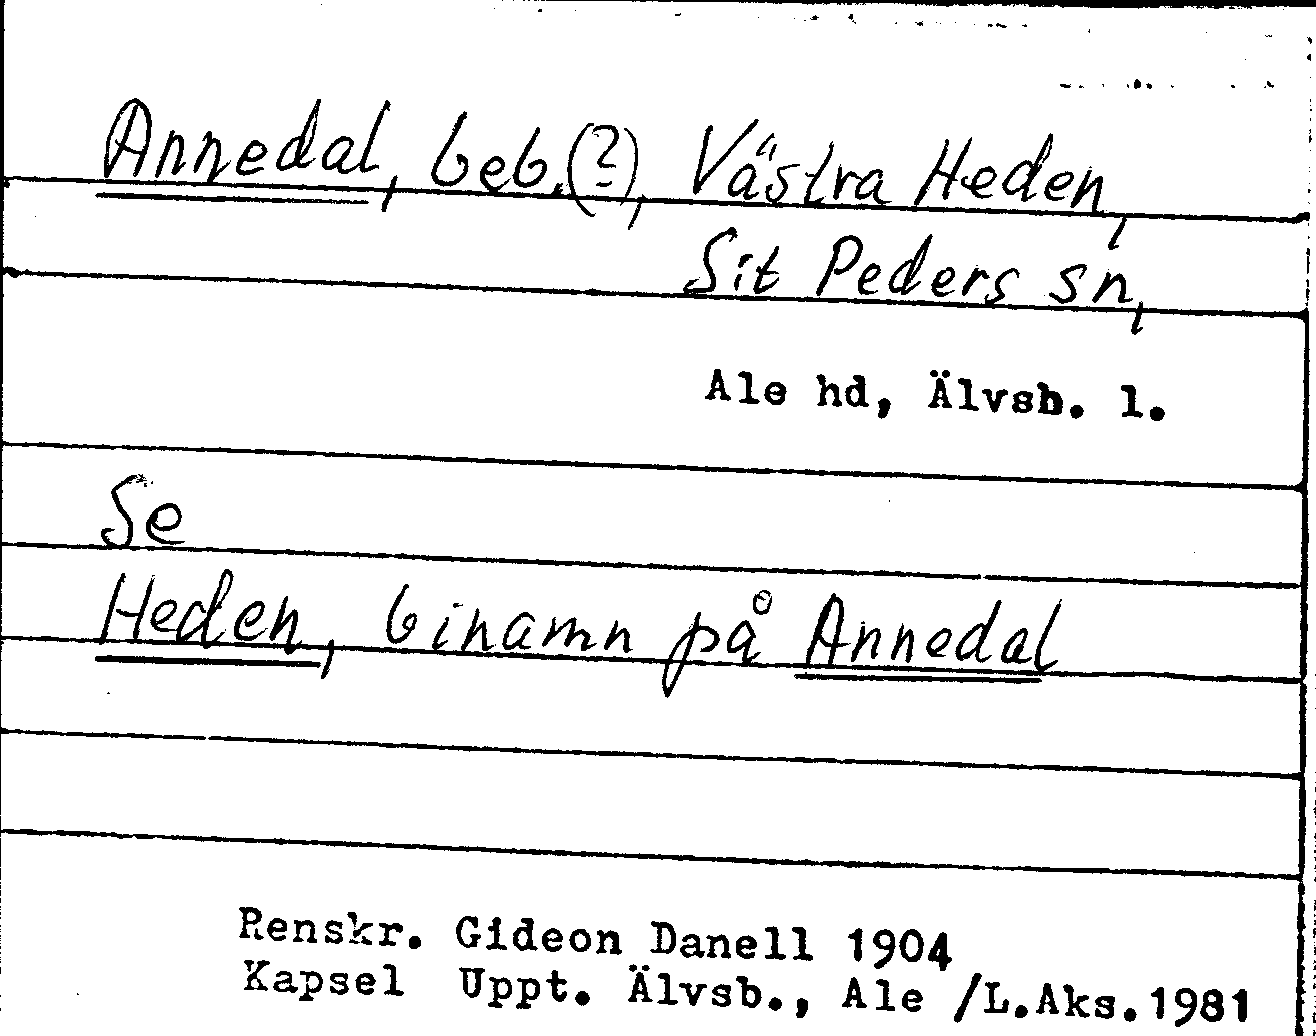 Annedal, beb.(?), Västra Heden,
S:t Peders sn,
Ale hd, Älvsb. l.
Se
Heden, binamn på Annedal
Renskr. Gideon Danell 1904
Kapsel Uppt. Älvsb., Ale /L.Aks.1981